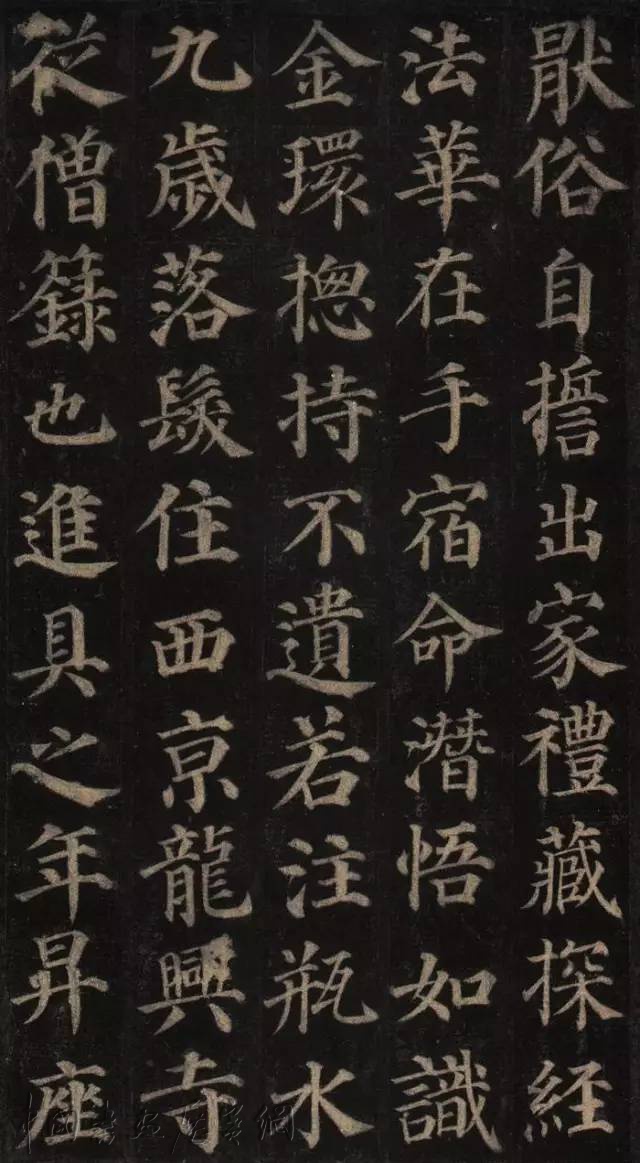 猒俗自誓出家禮藏探経
法華在手宿命潛悟如識
金環揔持不遺若注瓶水
九歲落髮住西亰龍興寺
從僧籙也進具之年昇座